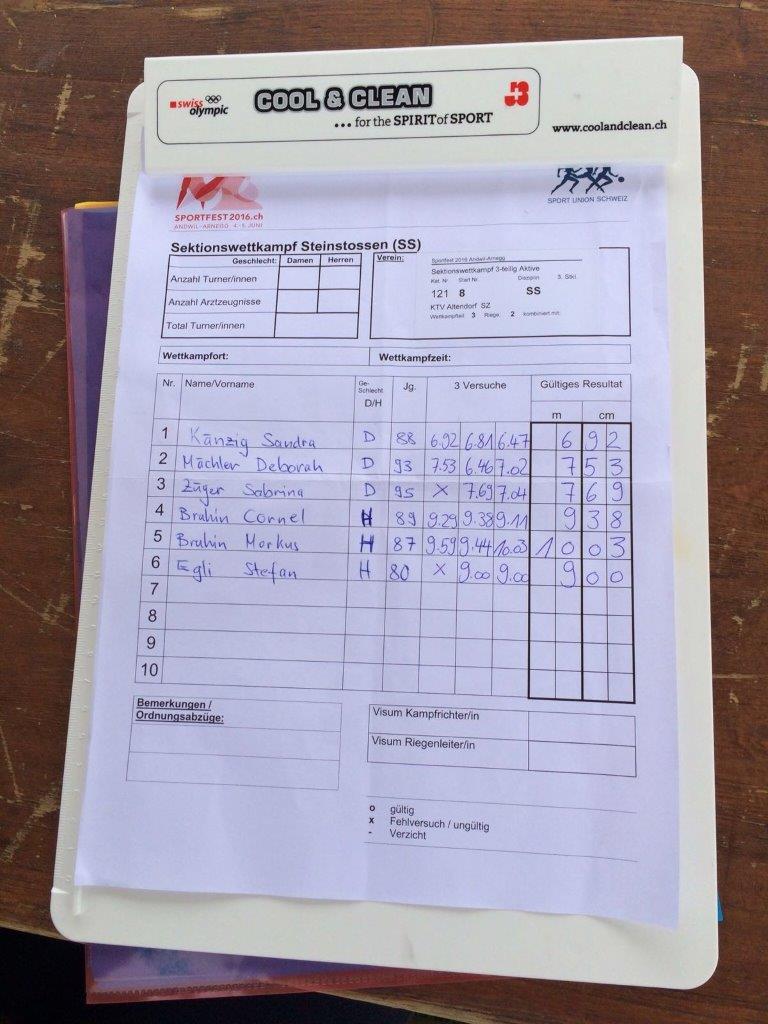 swiss olympic
COOL & CLEAN
... for the SPIRIT of SPORT
www.coolandclean.ch
SPORTFEST2016.ch
ANDWIL-ARNEGG 4.-5. JUNI
SPORT UNION SCHWEIZ
Sektionswettkampf Steinstossen (SS)
Geschlecht: Damen Herren
Anzahl Turner/innen
Anzahl Arztzeugnisse
Total Turner/innen
Verein:
Sportfest 2016 Andwil-Arnegg
Sektionswettkampf 3-teilig Aktive
Kat. Nr Start Nr. Disziplin 3. Stkl.
121 8 SS
KTV Altendorf SZ
Wettkampfteil 3 Riege: 2 kombiniert mit:
Wettkampfort: Wettkampfzeit:
Nr. Name/Vorname Ge-schlecht D/H Jg. 3 Versuche Gültiges Resultat
m cm
1 Känzig Sandra D 88 6.92 6.81 6.47 6 9 2
2 Mächler Deborah D 93 7.53 6.46 7.02 7 5 3
3 Züger Sabrina D 95 X 7.69 7.04 7 6 9
4 Bruhin Cornel H 89 9.29 9.38 9.11 9 3 8
5 Bruhin Markus H 87 9.59 9.44 10.03 1 0 0 3
6 Egli Stefan H 80 X 9.00 9.00 9 0 0
7
8
9
10
Bemerkungen /
Ordnungsabzüge:
Visum Kampfrichter/in
Visum Riegenleiter/in
o gültig
x Fehlversuch / ungültig
- Verzicht